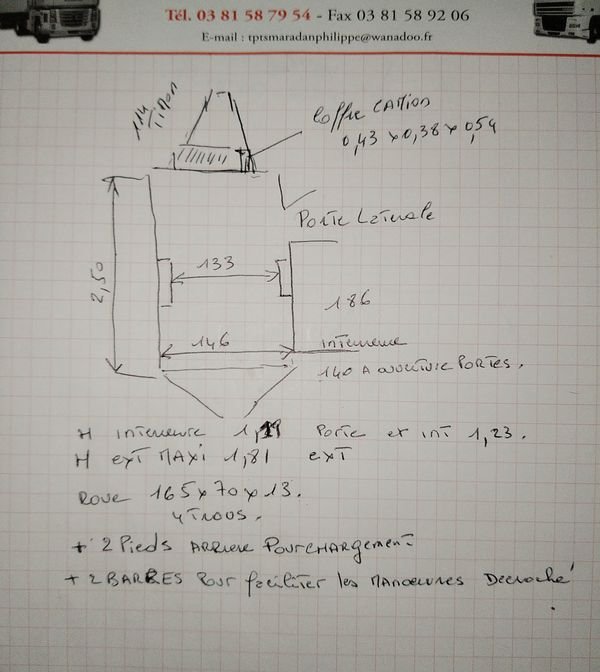 Tél. 03 81 58 79 54 - Fax 03 81 58 92 06
E-mail : tptsmaradanphilippe@wanadoo.fr
114
TIMON
Coffre CAMION
0,43 x 0,38 x 0,54
Porte Laterale
2,50
133
186
146
interieure
140 A ouverture PORTES.
H interieure 1,19 Porte et int 1,23.
H ext MAXI 1,81 ext
ROUE 165 x 70 x 13.
4 TROUS.
+ 2 Pieds ARRIERE POUR CHARGEMENT
+ 2 BARRES Pour faciliter les MANOEUVRES Decroché